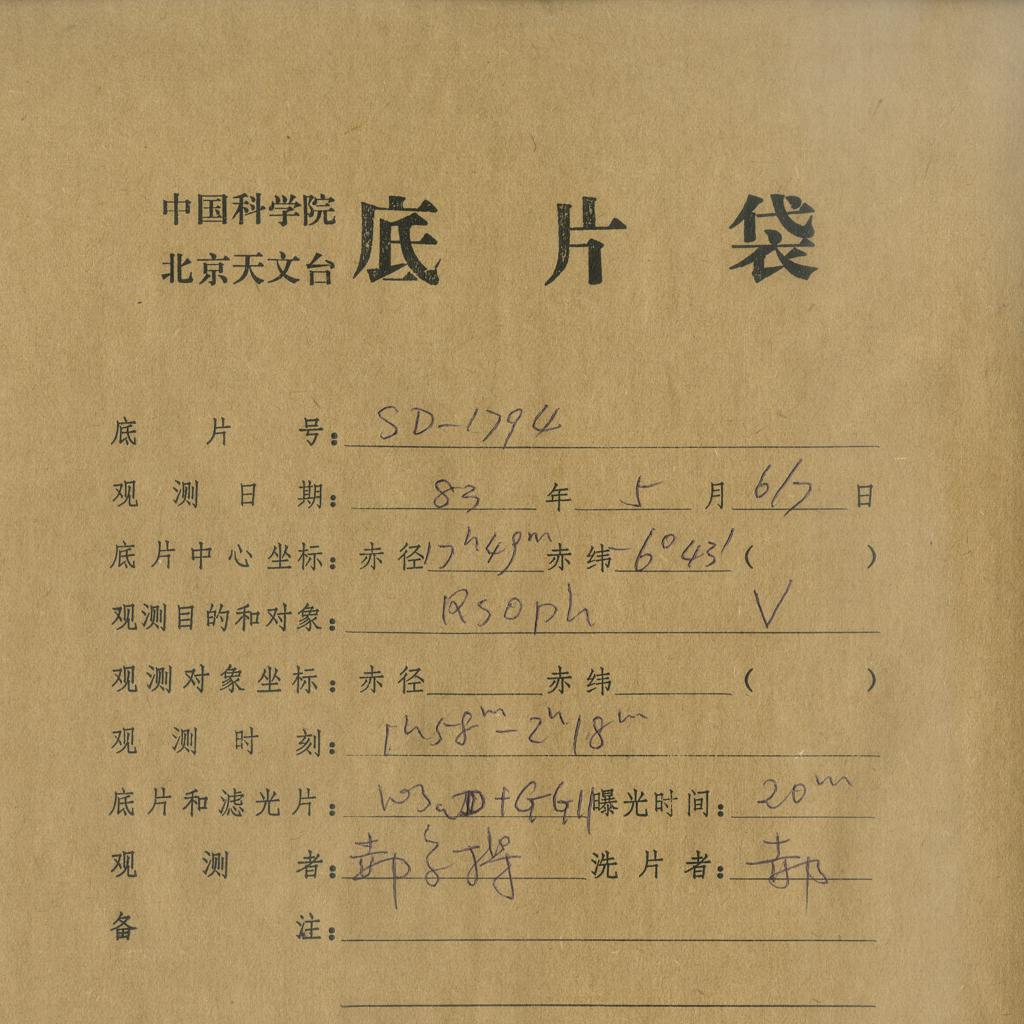 中国科学院
北京天文台
底片袋
底片号：SD-1794
观测日期：83年5月6/7日
底片中心坐标：赤径17h49m赤纬-6°43'（ ）
观测目的和对象：RSoph V
观测对象坐标：赤径 赤纬 （ ）
观测时刻：1h58m-2h18m
底片和滤光片：+GG11曝光时间：20m
观测者：郝 洗片者：郝
备注：